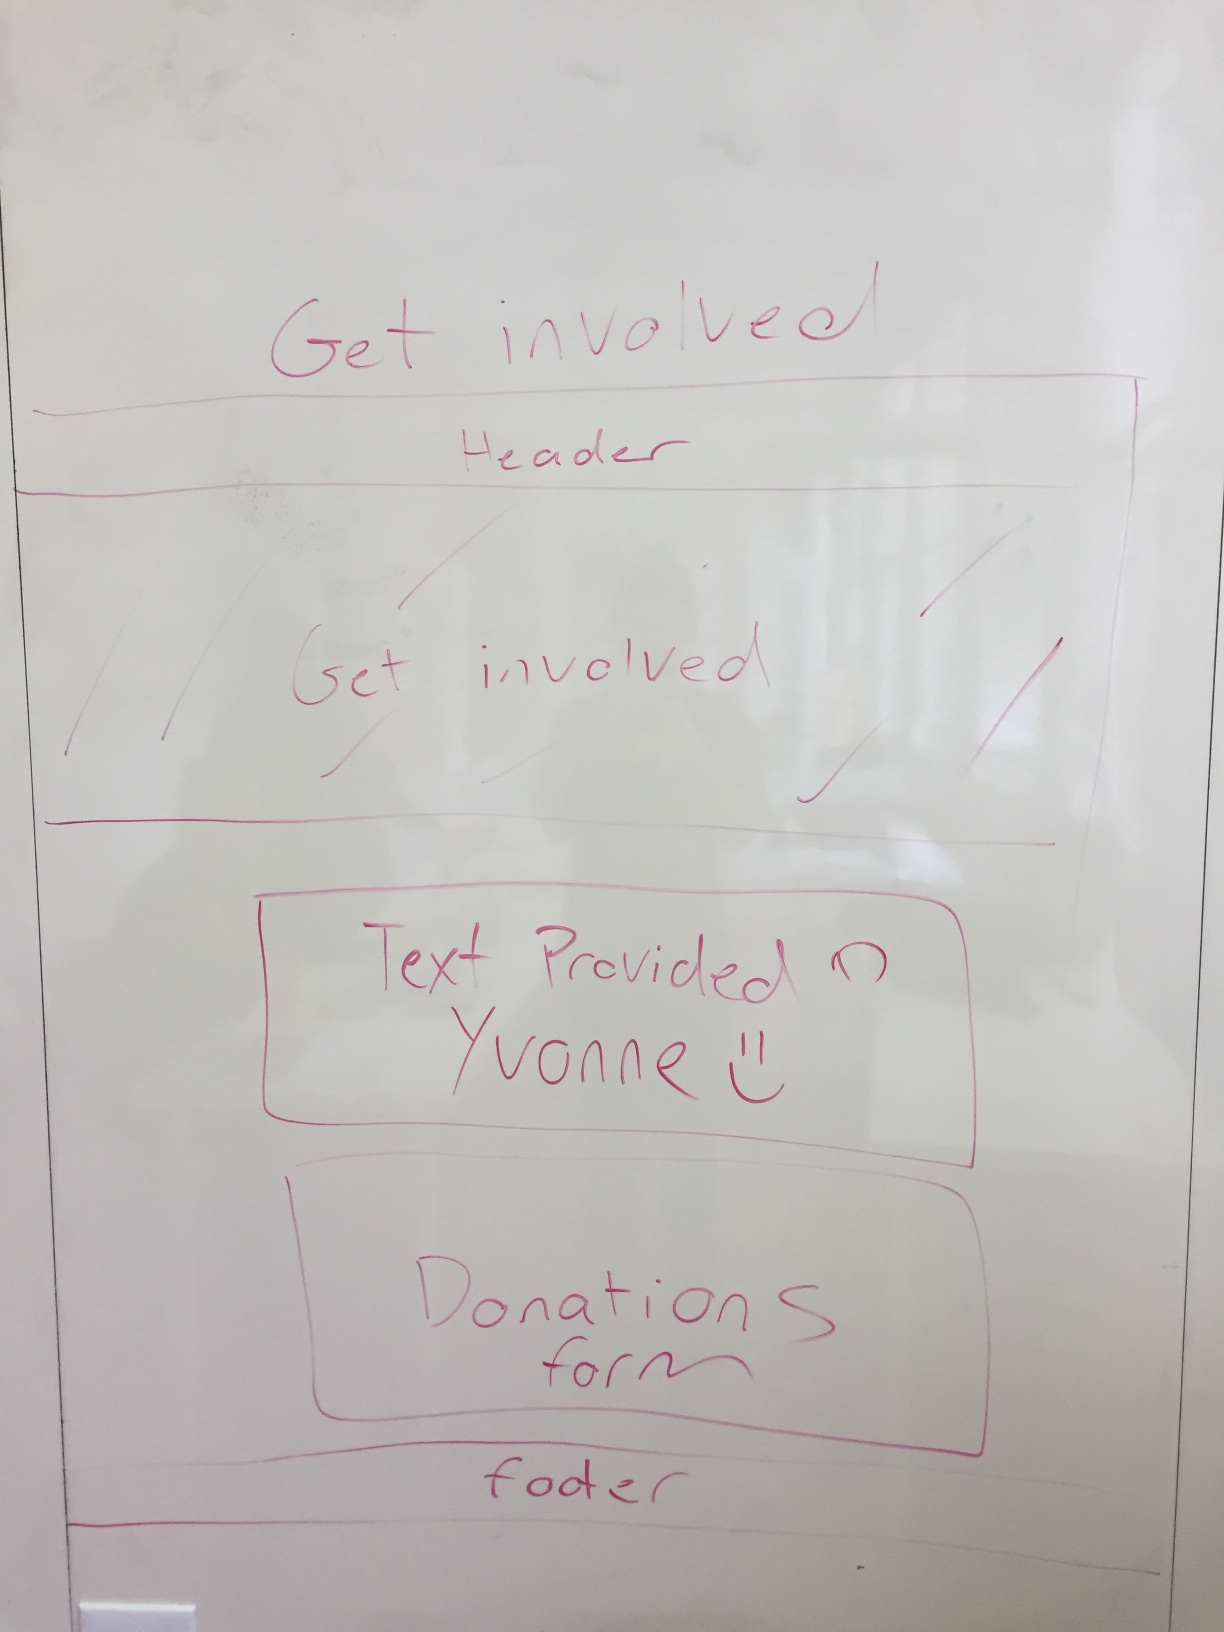 Get involved
Header
Get involved
Text Provided
Yvonne
Donations
form
footer